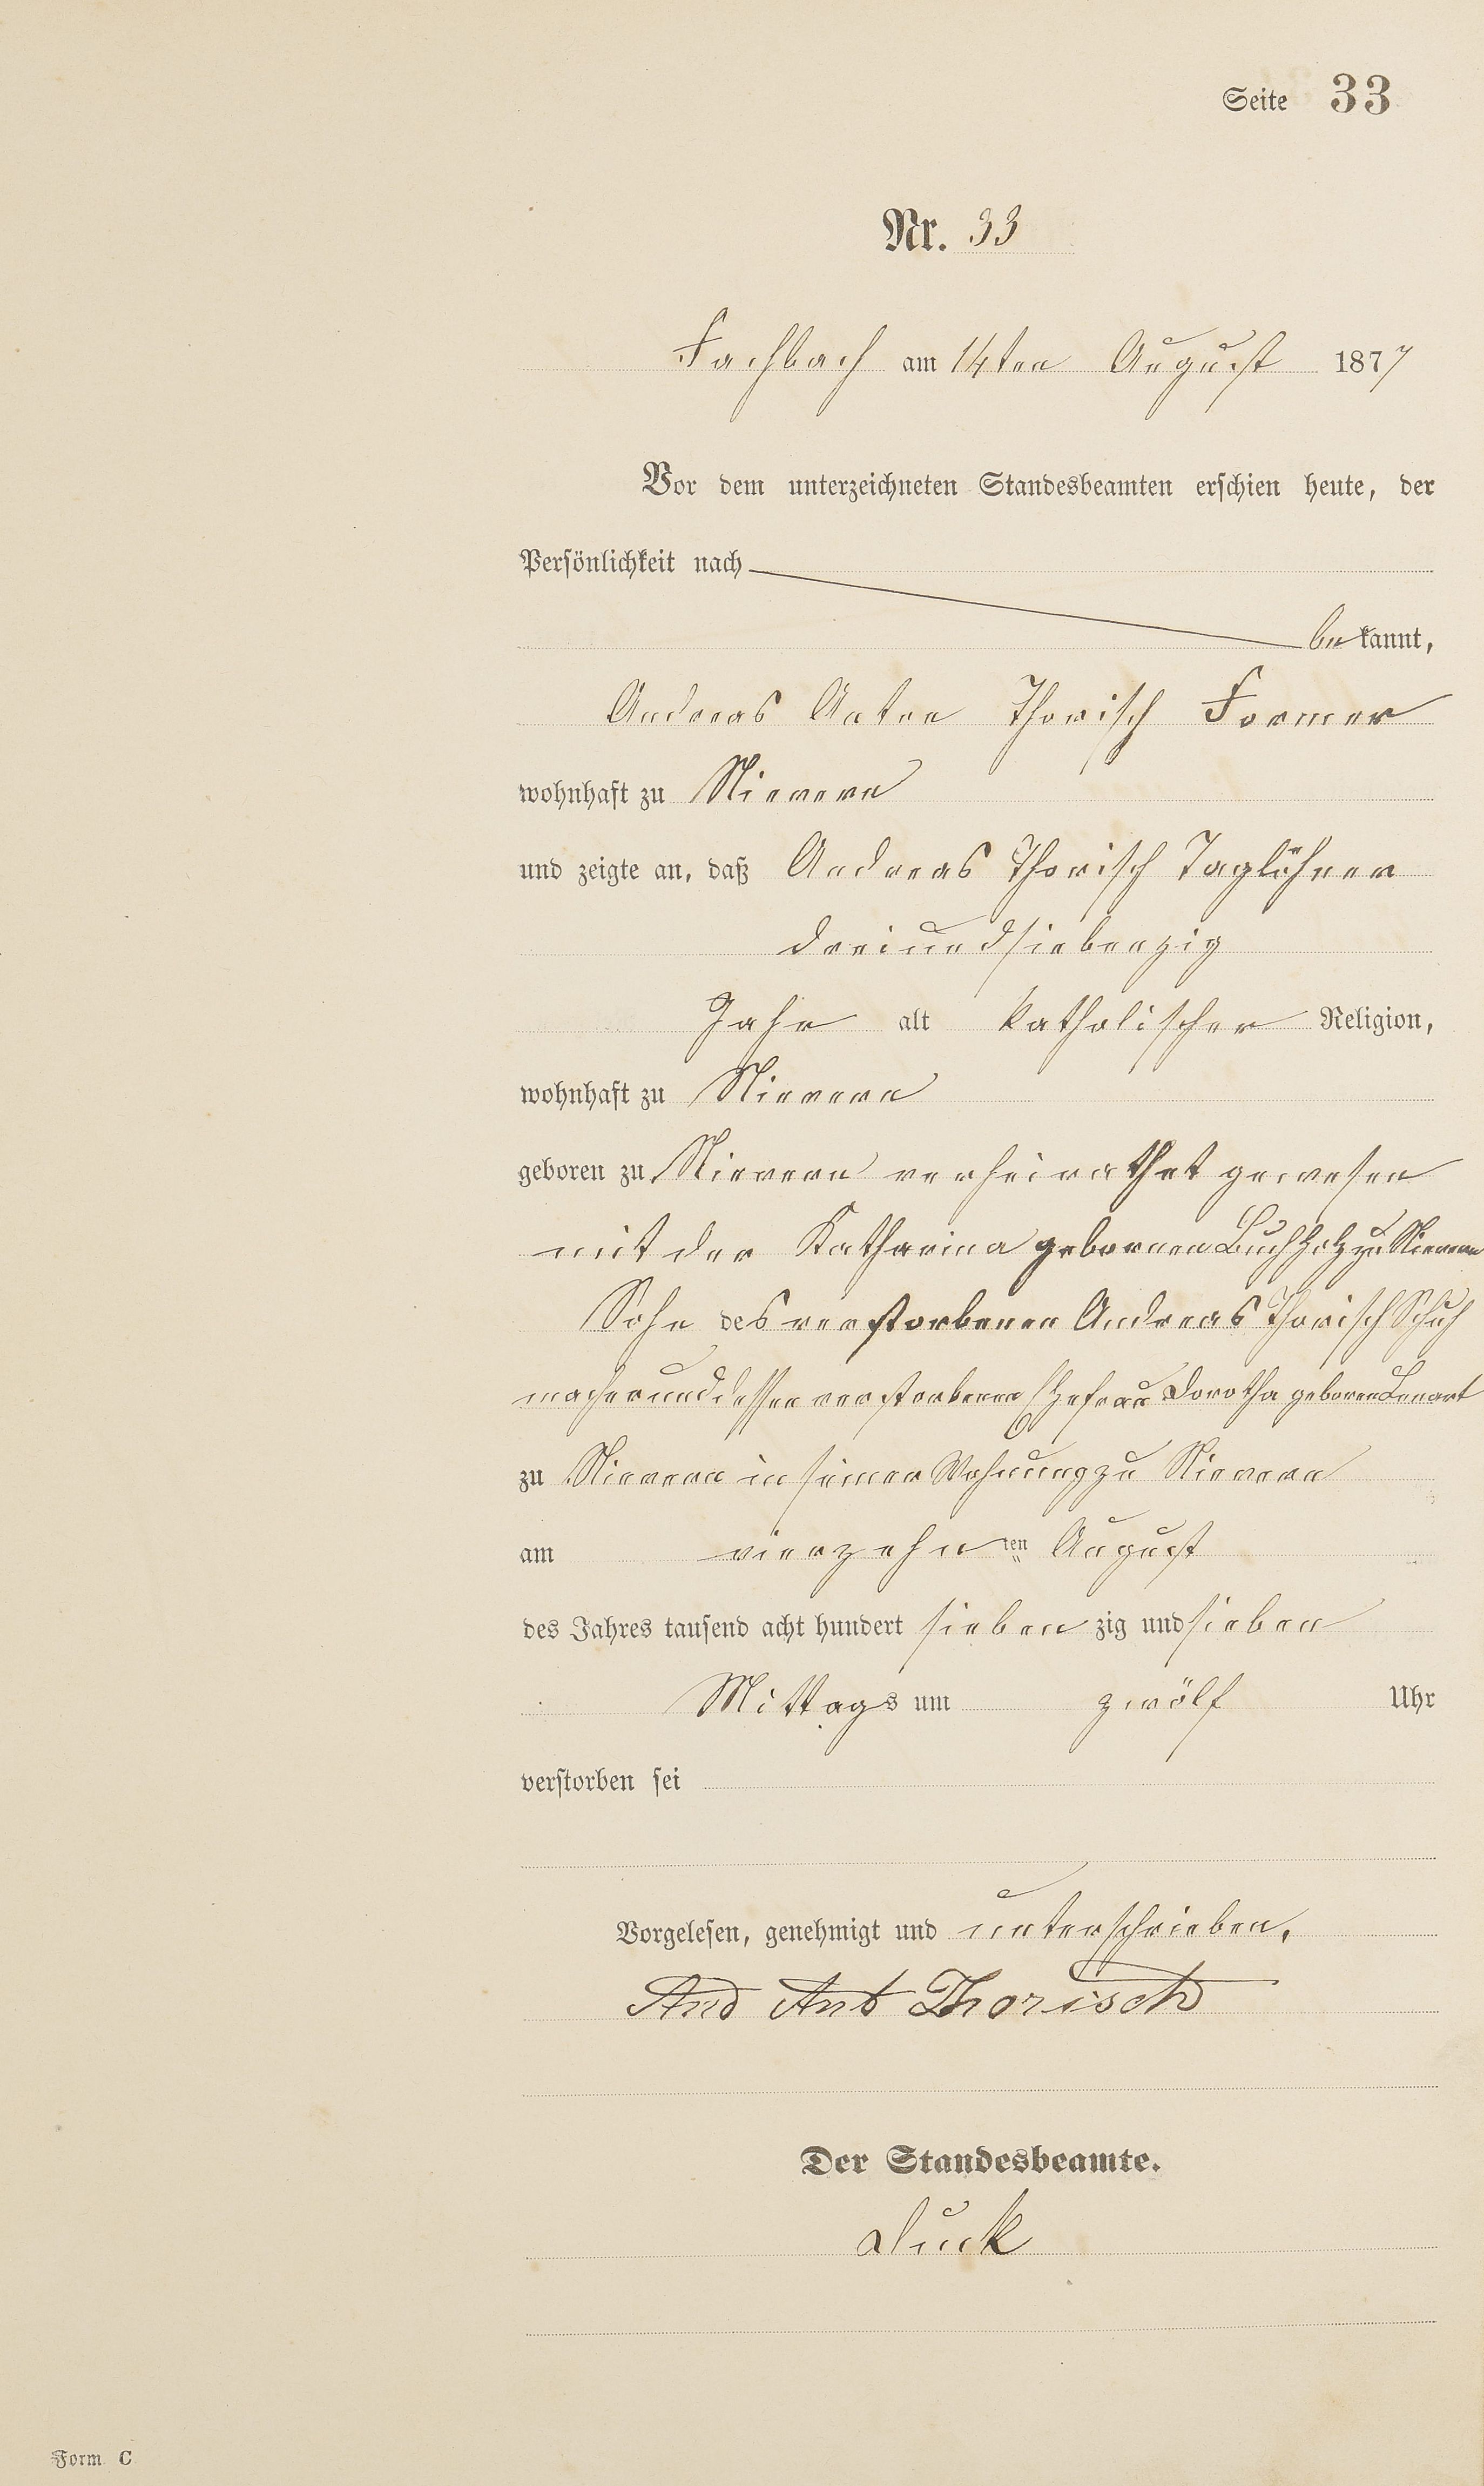 Seite 33
Nr. 33
Fachbach am 14ten August 1877
Vor dem unterzeichneten Standesbeamten erschien heute, der
Persönlichkeit nach
bekannt,
Andreas Anton Thorisch Former
wohnhaft zu Nievern
und zeigte an, daß Andreas Thorisch Taglöhner
dreiundsiebenzig
Jahr alt katholischer Religion,
wohnhaft zu Nievern
geboren zu Nievern verheirathet gewesen
mit der Katharina gebornen Buchholz zu Nievern
Sohn des verstorbenen Andreas Thorisch Schuh
macher und dessen verstorbenen Ehefrau Dorotha geboren Lenart
zu Nievern in seiner Wohnung zu Nievern
am vierzehnten August
des Jahres tausend acht hundert siebenzig und sieben
Mittags um zwölf Uhr
verstorben sei
Vorgelesen, genehmigt und unterschrieben.
And Ant Thorisch
Der Standesbeamte.
Duck
Form C